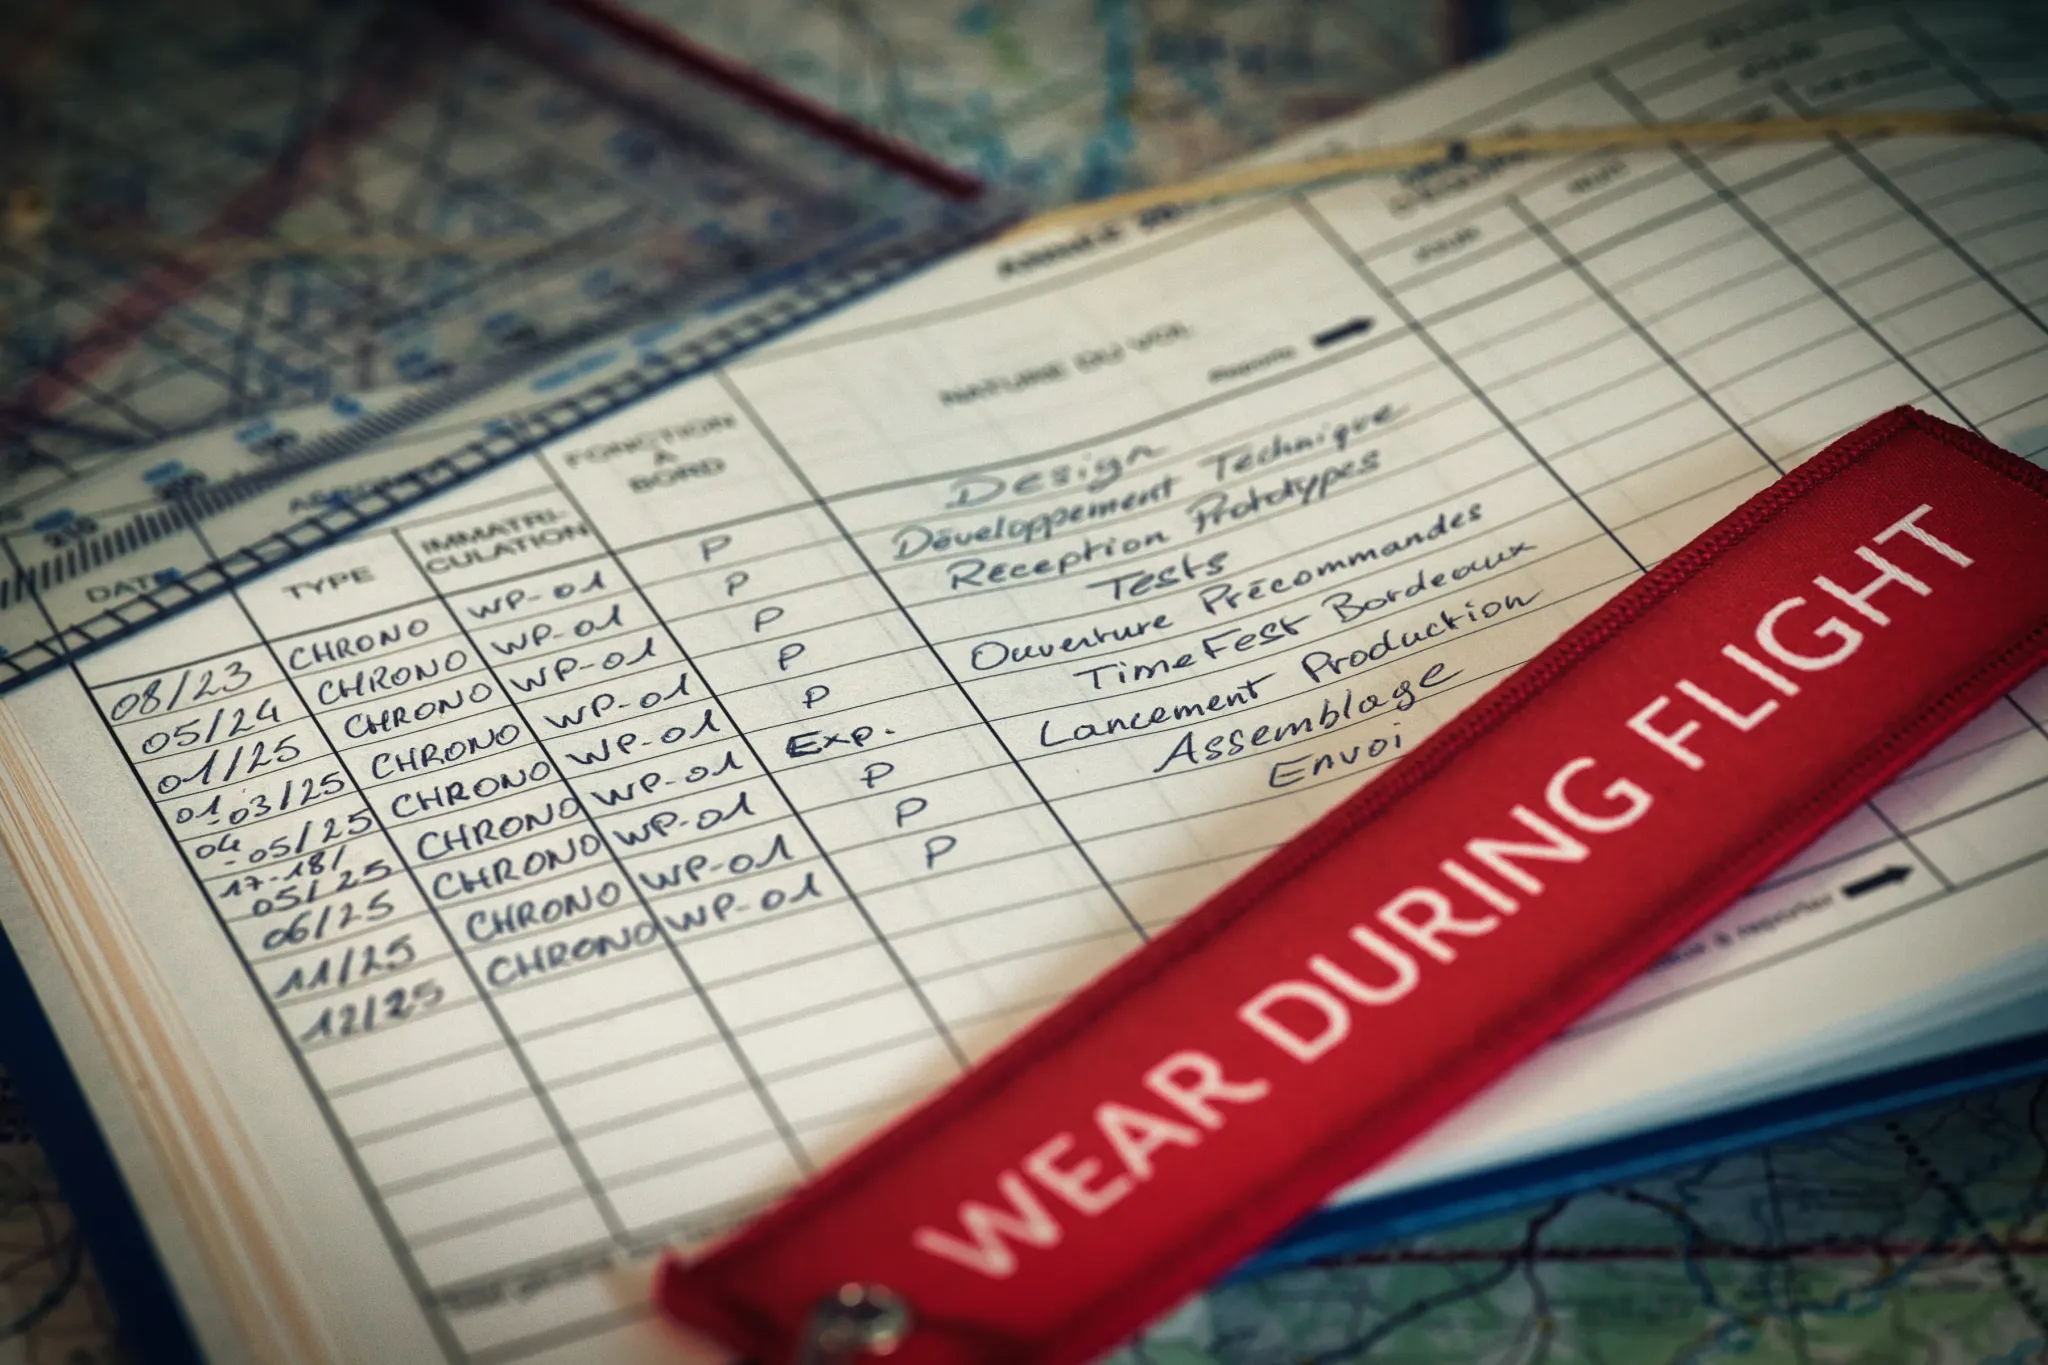 DATE TYPE IMMATRI-CULATION FONCTION A BORD NATURE DU VOL
JOUR
08/23 CHRONO WP-01 P Design
05/24 CHRONO WP-01 P Développement Technique
01/25 CHRONO WP-01 P Réception Prototypes
01-03/25 CHRONO WP-01 P Tests
04-05/25 CHRONO WP-01 P Ouverture Précommandes
17-18/05/25 CHRONO WP-01 Exp. TimeFest Bordeaux
06/25 CHRONO WP-01 P Lancement Production
11/25 CHRONO WP-01 P Assemblage
12/25 CHRONO WP-01 P Envoi
à reporter
WEAR DURING FLIGHT